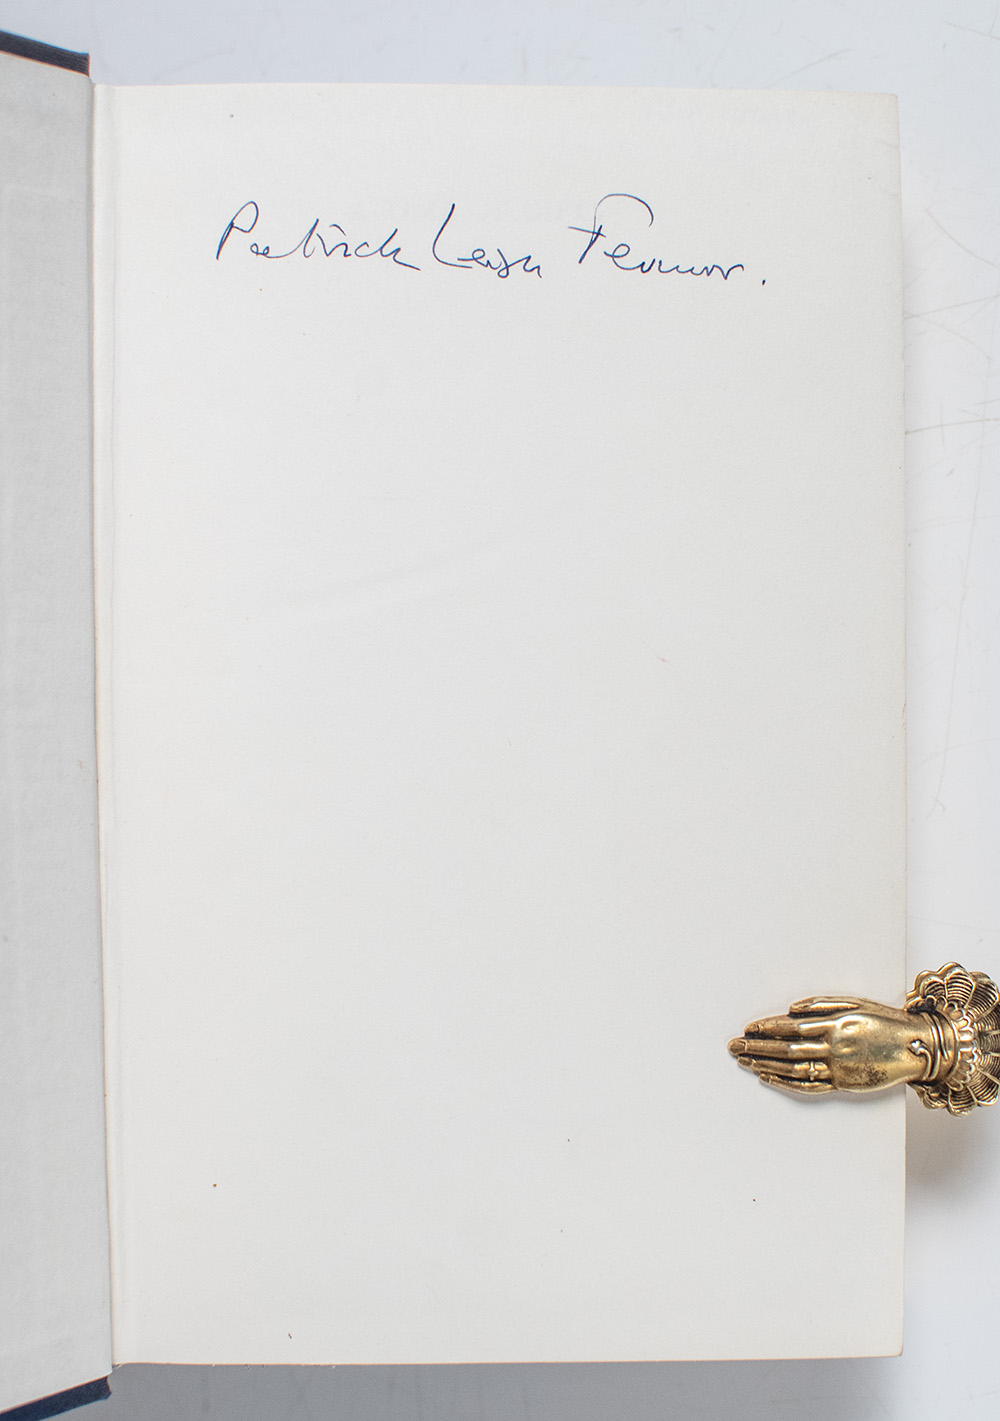 Patrick Leigh Fermor.